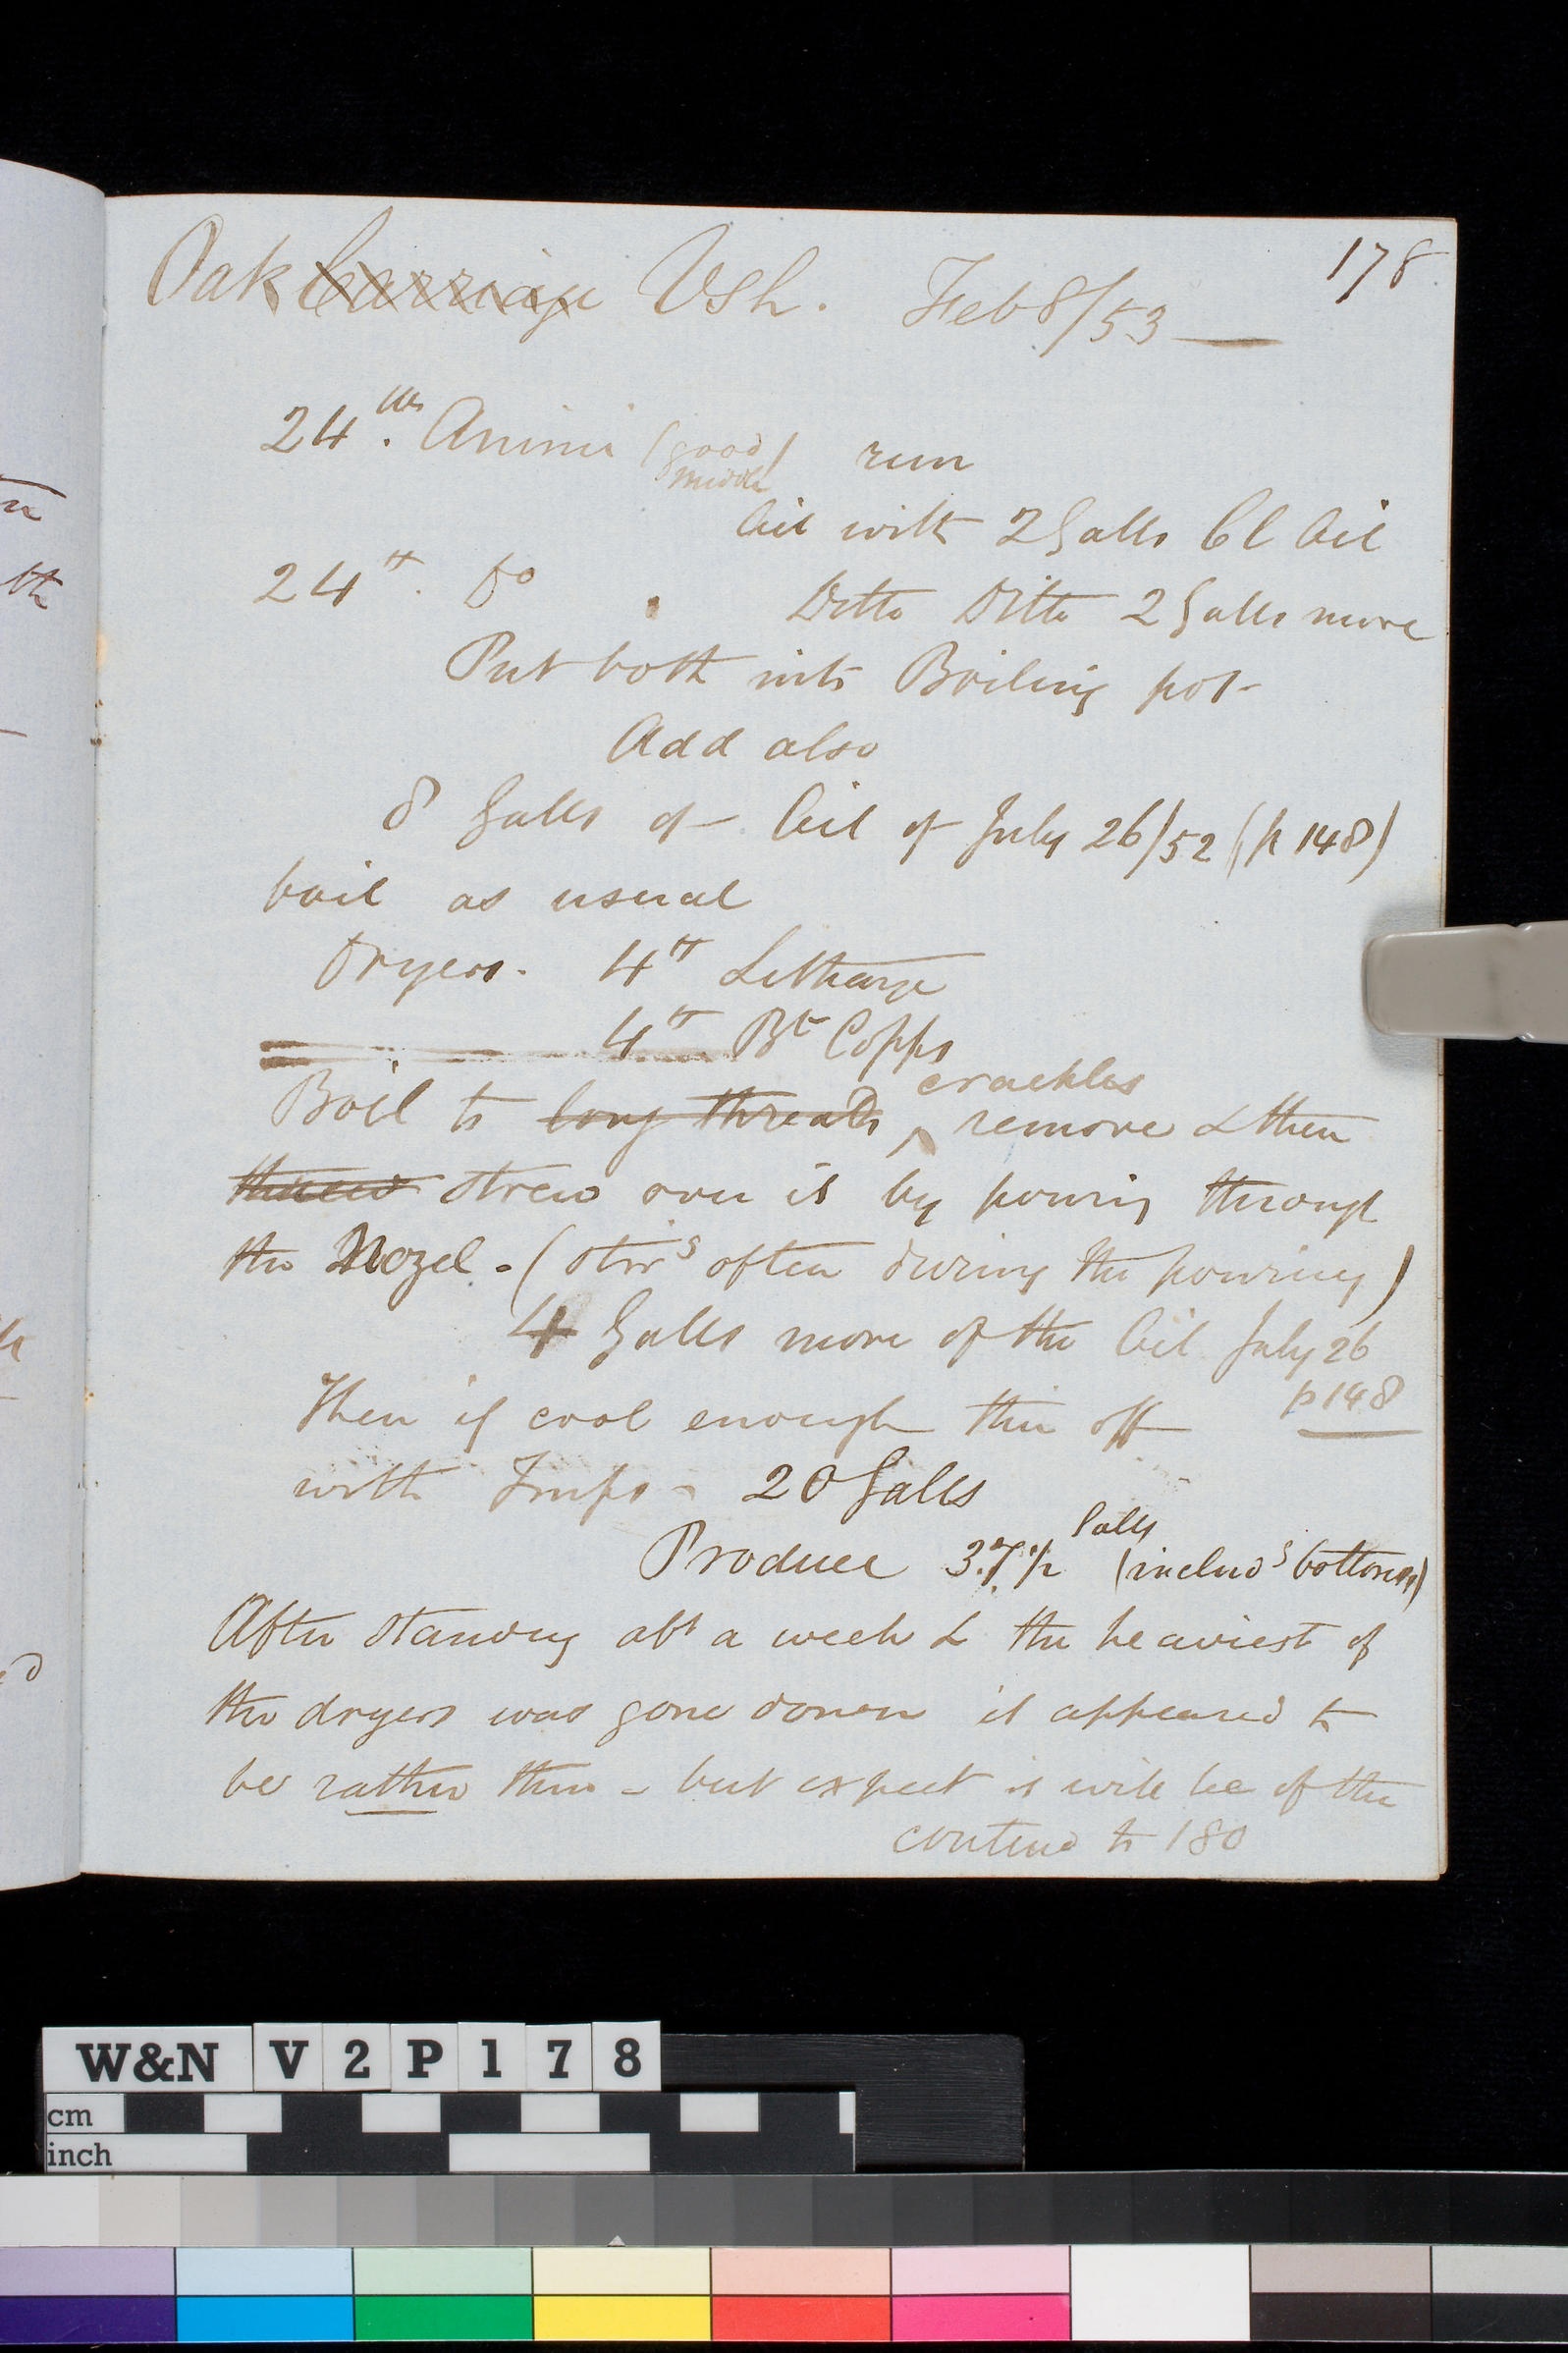 178
Oak Carriage Vsh. Feb 8/53
24 lbs. Animi (good middle) run
Oil with 2 Galls Cl Oil
24 lb. Do Ditto Ditto 2 Galls more
Put both into Boiling pot
Add also
8 Galls of Oil of July 26/52 (p 148)
boil as usual
Dryers. 4 lb Litharge
4 lb Bt Copps
crackles
Boil to long threads ^ remove & then
strew over it by pouring through
the Nozel - (stirg often during the pouring)
4 Galls more of the Oil July 26
p 148
Then if cool enough thin off
with Turps - 20 Galls
Produce 37 1/2 Galls (includg bottoms)
After standing abt a week & the heaviest of
the dryers was gone down it appeared to
be rather thin - but expect it will be of the
contind to 180
W&N V2P178
cm
inch